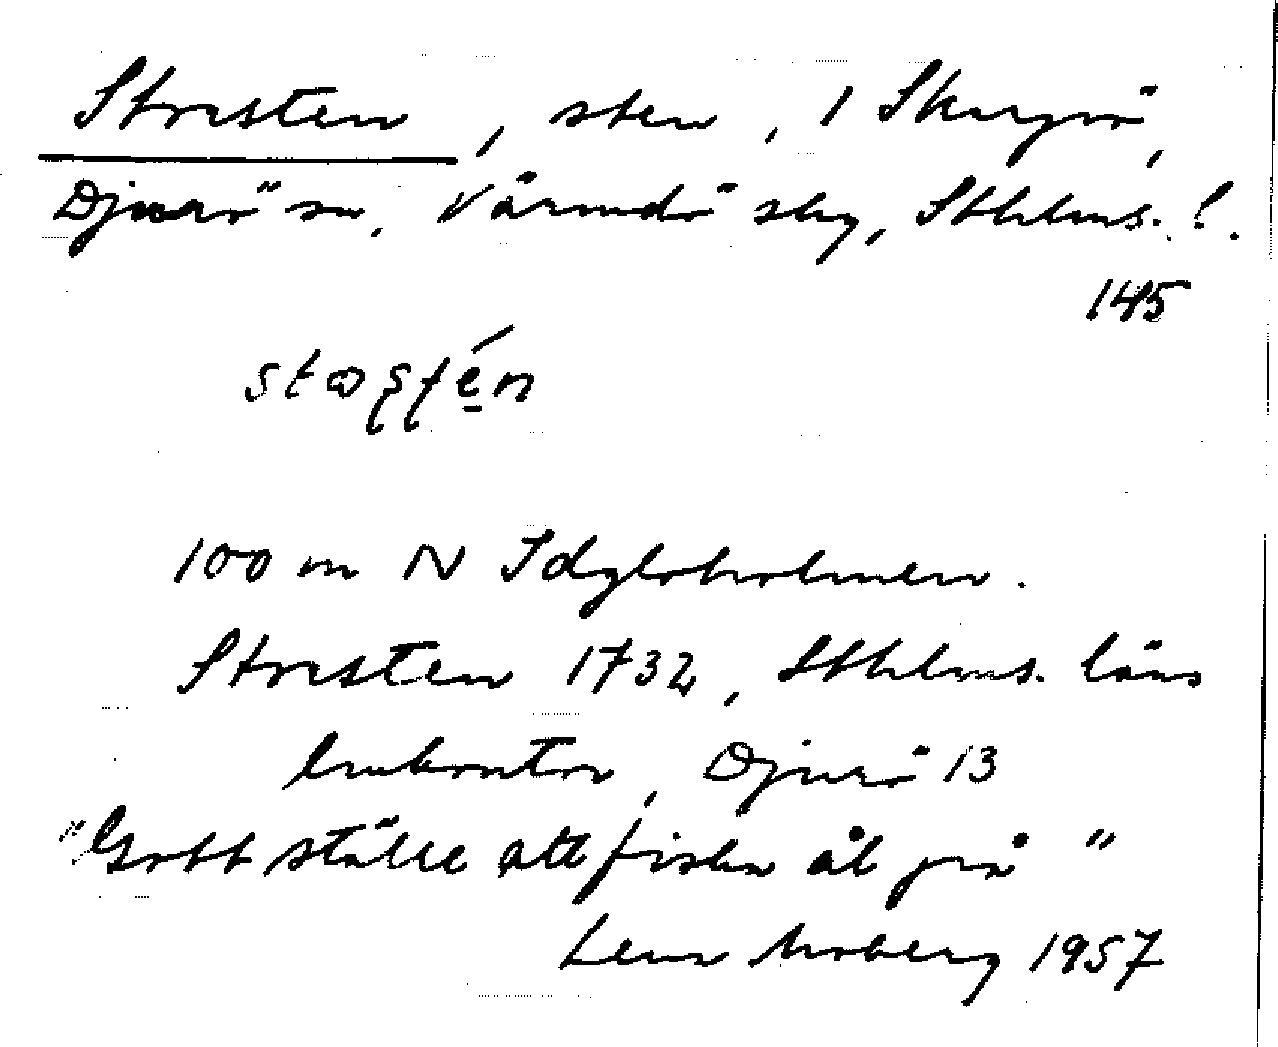 Storsten, sten, 1 Skarpö,
Djurö sn, Värmdö skg, Sthlms. l.
145
100 m N Idgloholmen.
Storsten 1732, Sthlms. läns
lmkontor, Djurö 13
"Gott ställe att fiska ål på"
Lena Moberg 1957